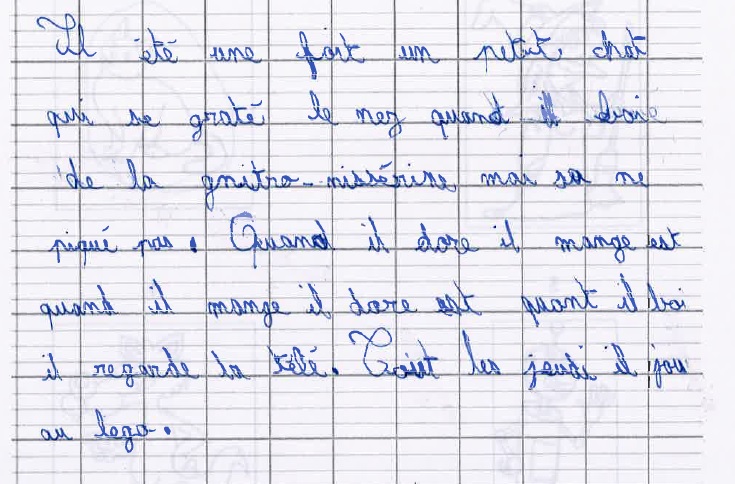 Il été une foit un petit chat
qui se graté le nez quand il boie
de la gnitro-nissérine mai sa ne
piqué pas. Quand il dore il mange est
quand il mange il dore est quant il boi
il regarde la télé. Tout les jeudi il jou
au lego.